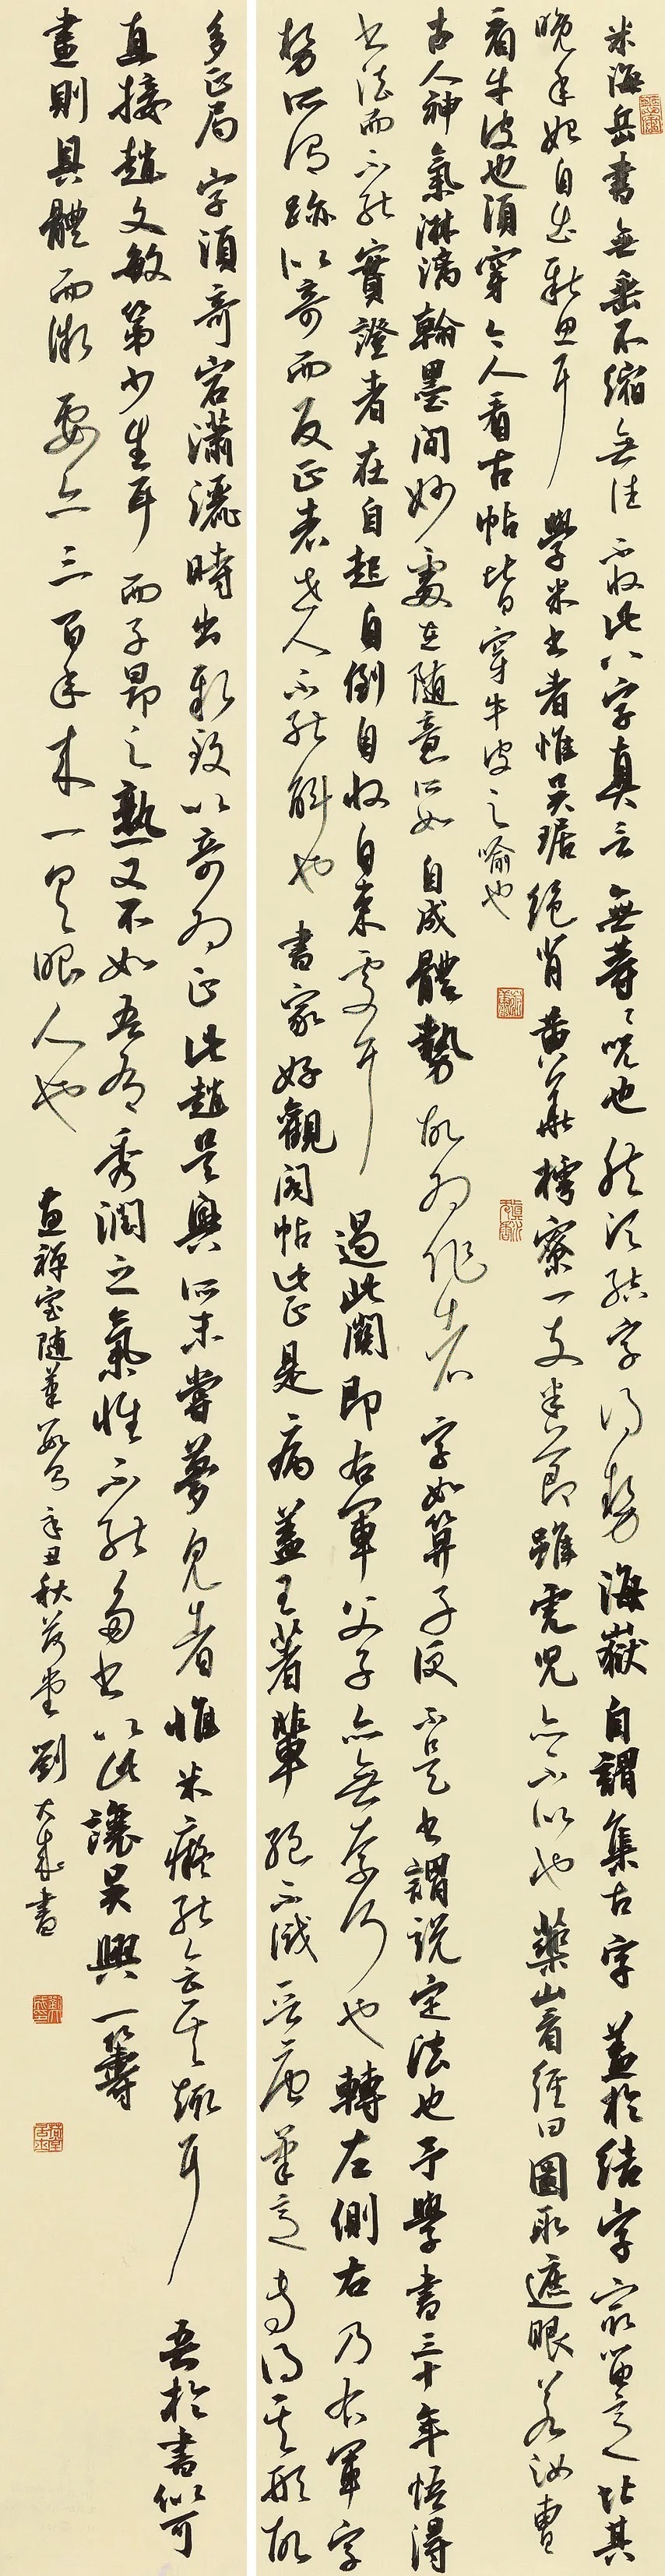 米海岳書無垂不縮無往不收此八字真言無等等咒也然須結字得勢海嶽自謂集古字蓋於結字最留意比其
晚年始自出新意耳學米書者惟吳琚絕肖黃華樗寮一支半節雖虎兒亦不似也藥山看經曰圖取遮眼若汝曹
看牛皮也須穿今人看古帖皆穿牛皮之喻也
古人神氣淋漓翰墨間妙處在隨意所如自成體勢故為作者字如算子便不是書謂說定法也予學書三十年悟得
書法而不能實證者在自起自倒自收自束處耳過此關即右軍父子亦無奈何也轉左側右乃右軍字
勢所謂跡似奇而反正者世人不能解也書家好觀閣帖此正是病蓋王著輩絕不識晉唐筆意專得其形故
多正局字須奇宕瀟灑時出新致以奇為正此趙吳興所未嘗夢見者惟米癡能會其趣耳吾於書似可
直接趙文敏第少生耳而子昂之熟又不如吾有秀潤之氣惟不能多書以此讓吳興一籌
畫則具體而微要亦三百年來一具眼人也畫禪室隨筆數句辛丑秋芳堂劉大成書